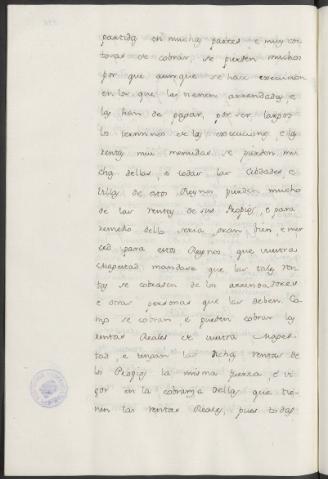 partida en muchas partes, e muy cos
tosas de cobrar, se pierden muchas
por que aunque se hace execucion
en los que las tienen arrendadas, e
las han de pagar, por ser largos
los terminos de las execuciones, e las
rentas mui menudas se pierden mu
chas dellas, e todas las Cibdades, e
Villas de estos Reynos pierden mucho
de las rentas de sus Propios, e para
remedio dello seria gran bien, e mer
ced para estos Reynos, que vuestra
Magestad mandara que las tales ren
tas se cobrasen de los arrendadores
e otras personas que las deben, Co
mo se cobran, e pueden cobrar las
rentas Reales de vuestra Mages
tad, e tengan las dichas rentas de
los Propios la misma fuerza, e vi
gor en la cobranza dellas que tie
nen las rentas Reales, pues todas